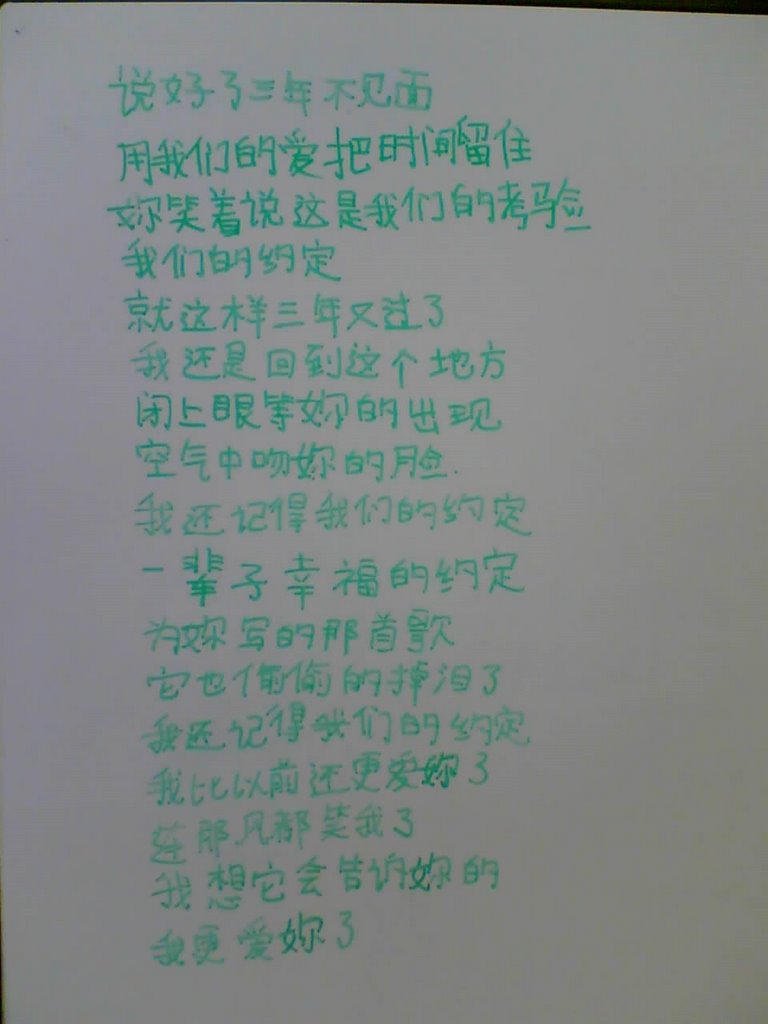 说好了三年不见面
用我们的爱把时间留住
妳笑着说这是我们的考验
我们的约定
就这样三年又过了
我还是回到这个地方
闭上眼等妳的出现
空气中吻妳的脸.
我还记得我们的约定
一辈子幸福的约定
为妳写的那首歌
它也偷偷的掉泪了
我还记得我们的约定
我比以前还更爱妳了
连那风都笑我了
我想它会告诉妳的
我更爱妳了